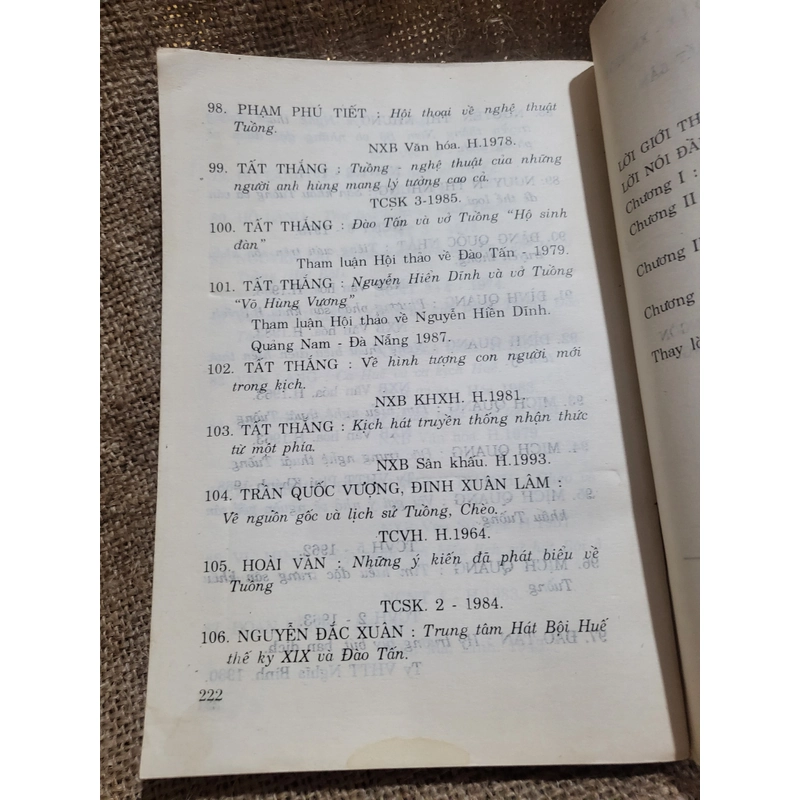 98. PHẠM PHÚ TIẾT : Hội thoại về nghệ thuật
Tuồng.
NXB Văn hóa. H.1978.
99. TẤT THẮNG : Tuồng - nghệ thuật của những
người anh hùng mang lý tưởng cao cả.
TCSK 3-1985.
100. TẤT THẮNG : Đào Tấn và vở Tuồng “Hộ sinh
đàn”
Tham luận Hội thảo về Đào Tấn - 1979.
101. TẤT THẮNG : Nguyễn Hiển Dĩnh và vở Tuồng
“Võ Hùng Vương”
Tham luận Hội thảo về Nguyễn Hiển Dĩnh.
Quảng Nam - Đà Nẵng 1987.
102. TẤT THẮNG : Về hình tượng con người mới
trong kịch.
NXB KHXH. H.1981.
103. TẤT THẮNG : Kịch hát truyền thống nhận thức
từ một phía.
NXB Sân khấu. H.1993.
104. TRẦN QUỐC VƯỢNG, ĐINH XUÂN LÂM :
Về nguồn gốc và lịch sử Tuồng, Chèo.
TCVH. H.1964.
105. HOÀI VĂN : Những ý kiến đã phát biểu về
Tuồng
TCSK. 2 - 1984.
106. NGUYỄN ĐẮC XUÂN : Trung tâm Hát Bội Huế
thế kỷ XIX và Đào Tấn.
222
LỜI GIỚI TH
LỜI NÓI ĐẦ
Chương I :
Chương II
Chương I
Chương
Thay lờ